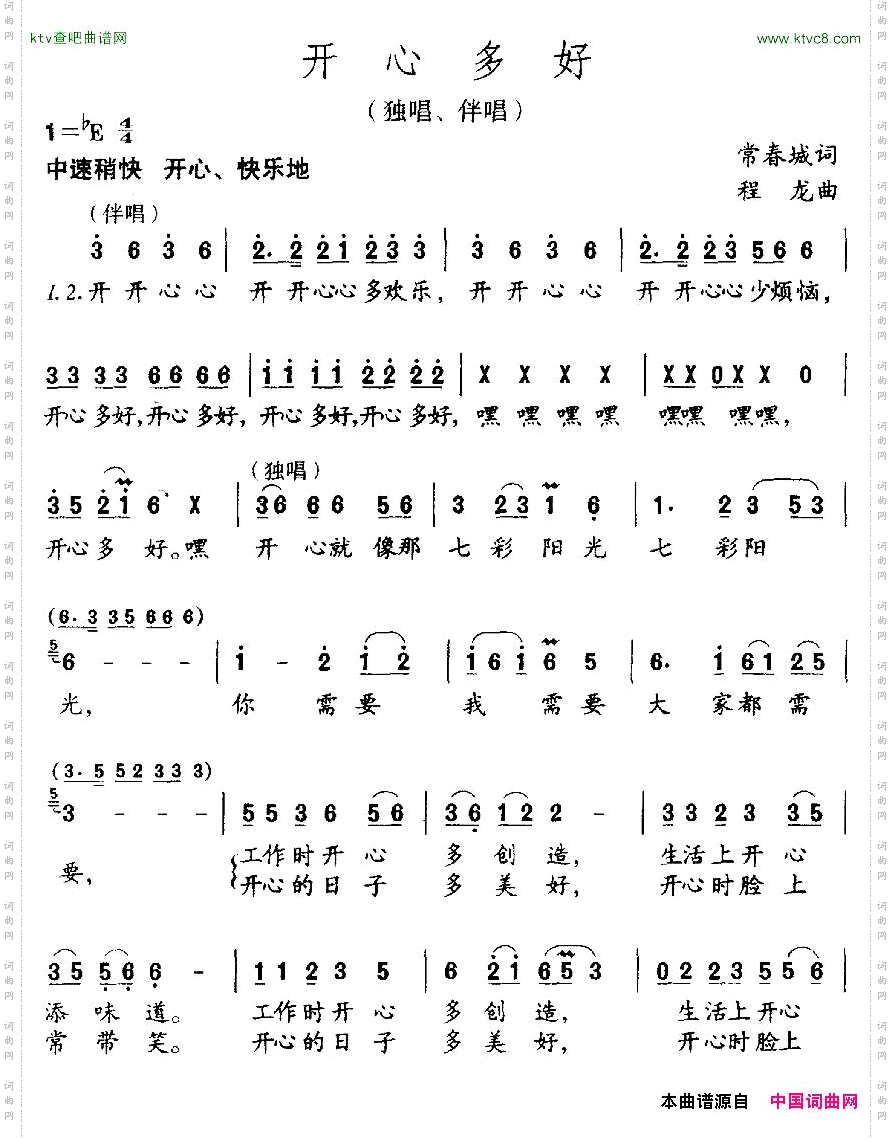 ktv查吧曲谱网
www.ktvc8.com
开心多好
（独唱、伴唱）
1=♭E 4/4
中速稍快 开心、快乐地
常春城词
程 龙曲
（伴唱）
3 6 3 6 | 2. 2 2 1 2 3 3 | 3 6 3 6 | 2. 2 2 3 5 6 6 |
1.2.开 开 心 心 开 开心心多欢乐, 开 开 心 心 开 开心心少烦恼,
3 3 3 3 6 6 6 6 | 1 1 1 1 2 2 2 2 | X X X X | X X 0 X X 0 |
开心多好,开心多好, 开心多好,开心多好, 嘿 嘿 嘿 嘿 嘿嘿 嘿嘿,
（独唱）
3 5 2 1 6 X | 3 6 6 6 5 6 | 3 2 3 1 6 | 1. 2 3 5 3 |
开心多 好。嘿 开 心就像那 七 彩 阳 光 七 彩阳
(6. 3 3 5 6 6 6)
5 6 - - - | 1 - 2 1 2 | 1 6 1 6 5 | 6. 1 6 1 2 5 |
光, 你 需 要 我 需 要 大 家都 需
(3. 5 5 2 3 3 3)
5 3 - - - | 5 5 3 6 5 6 | 3 6 1 2 2 - | 3 3 2 3 3 5 |
要, 工作时开 心 多 创 造, 生活上开 心
开心的日 子 多 美 好, 开心时脸 上
3 5 5 6 6 - | 1 1 2 3 5 | 6 2 1 6 5 3 | 0 2 2 3 5 5 6 |
添 味 道。 工作时开 心 多 创 造, 生活上开心
常 带 笑。 开心的日 子 多 美 好, 开心时脸上
本曲谱源自 中国词曲网
词曲网